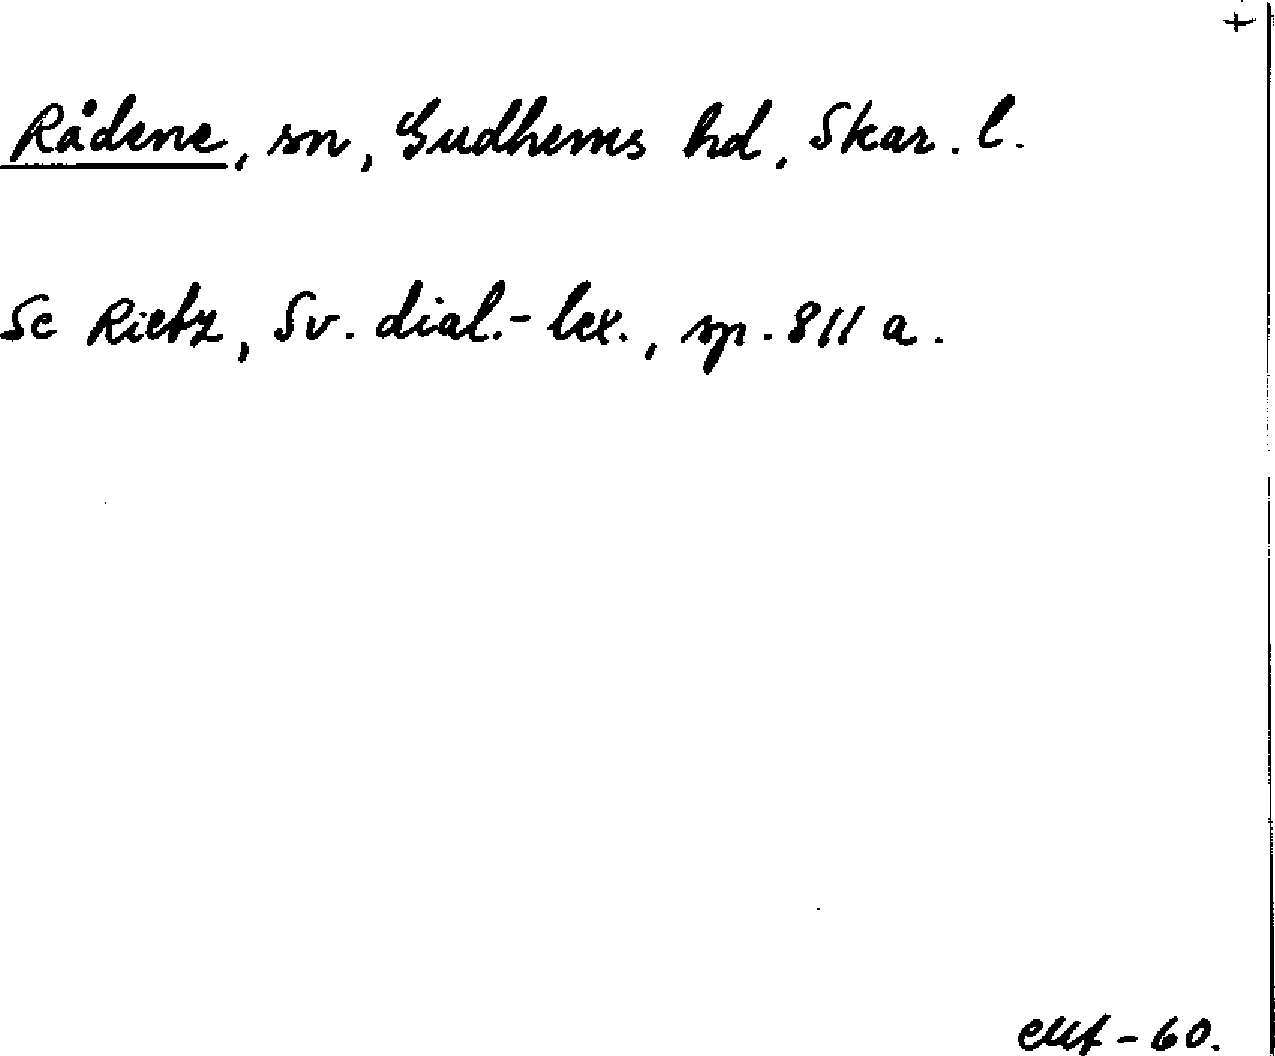 +
Rådene, sn, Gudhems hd, Skar. l.
Se Rietz, Sv. dial.-lex., sp. 811 a.
-60.